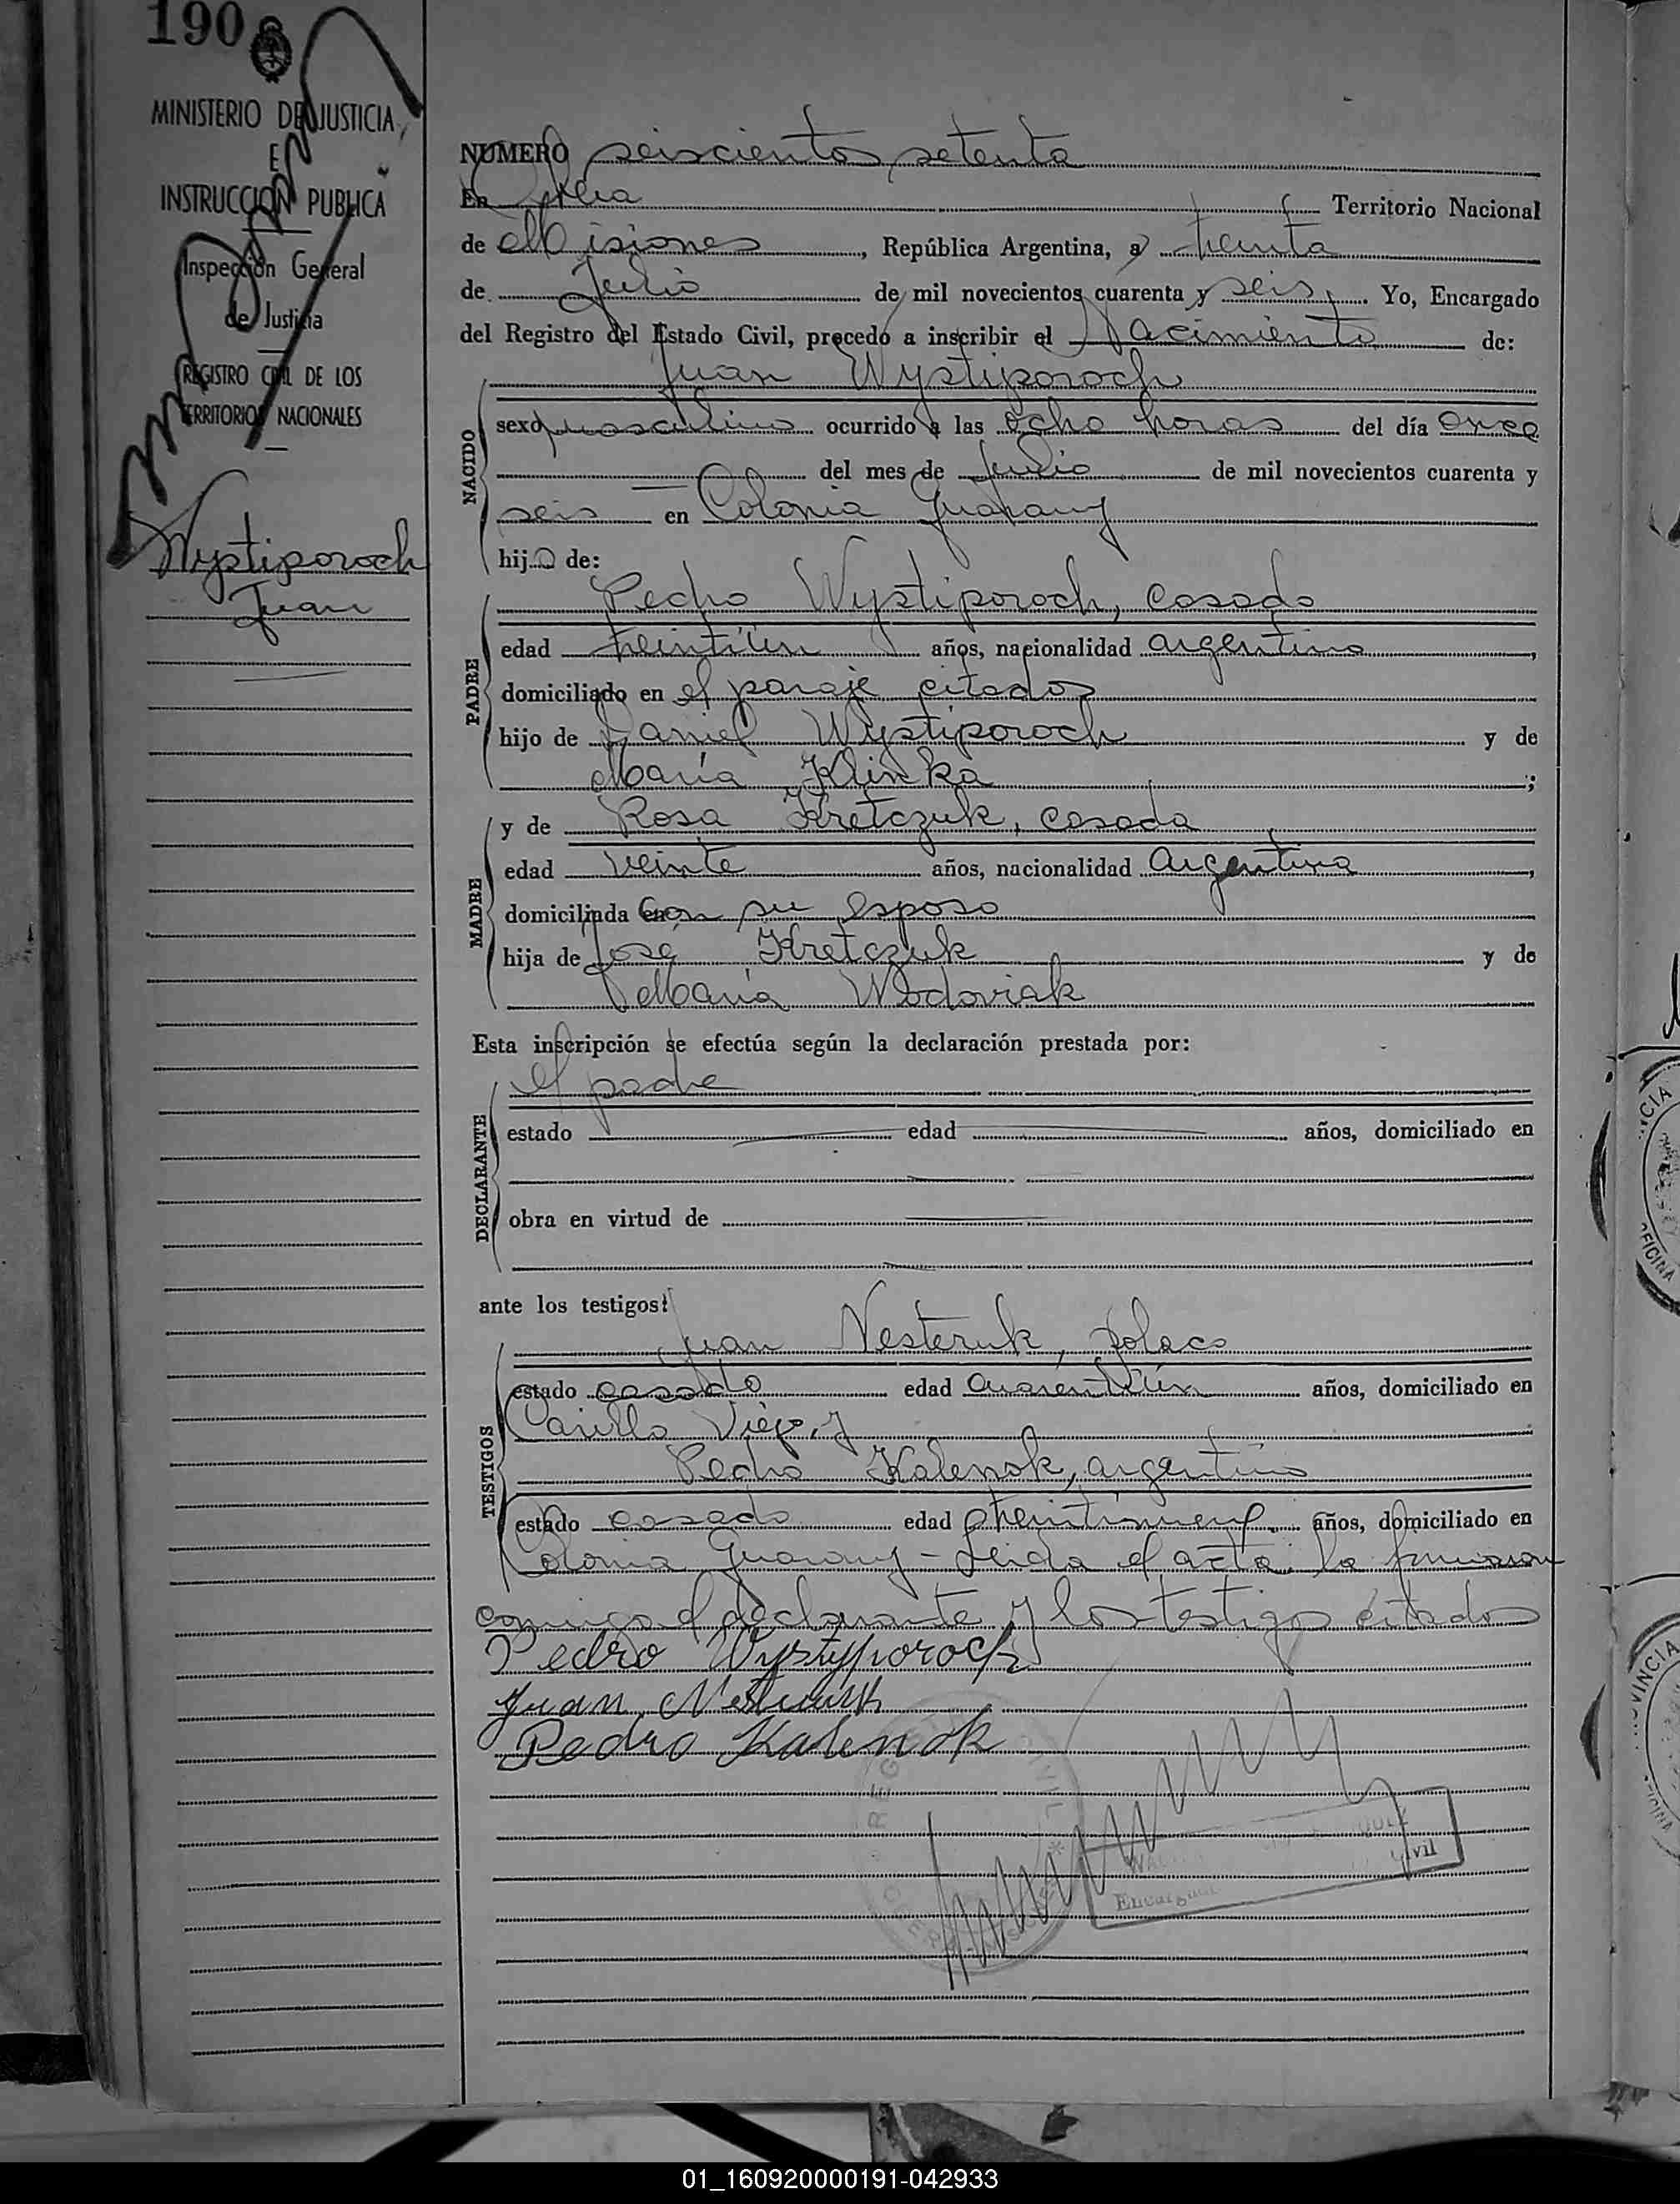 190
MINISTERIO DE JUSTICIA
E
INSTRUCCION PUBLICA
Inspección General
de Justicia
REGISTRO CIVIL DE LOS
TERRITORIOS NACIONALES
Wystiporoch
Juan
NUMERO seiscientos setenta
En Territorio Nacional
de Misiones, República Argentina, a treinta
de Julio de mil novecientos cuarenta y seis. Yo, Encargado
del Registro del Estado Civil, precedo a inscribir el Nacimiento de:
Juan Wystiporoch
NACIDO
sexo masculino ocurrido a las ocho horas del día once
del mes de Julio de mil novecientos cuarenta y
seis en Colonia Guarany
hijo de:
PADRE
Pedro Wystiporoch, casado
edad treintiún años, nacionalidad argentino,
domiciliado en el paraje citados
hijo de Daniel Wystiporoch y de
María Klinka;
MADRE
y de Rosa Kretczuk, casada
edad veinte años, nacionalidad argentina,
domiciliada con su esposo
hija de José Kretczuk y de
María Wdoviak
Esta inscripción se efectúa según la declaración prestada por:
DECLARANTE
el padre
estado edad años, domiciliado en
obra en virtud de
ante los testigos:
TESTIGOS
Juan Nesteruk, polaco
estado casado edad cuarentiún años, domiciliado en
Viejo, y
Pedro Kalenok, argentino
estado casado edad treintinueve años, domiciliado en
Colonia Guarany - Leida el acta la firmaron
conmigo el declarante y los testigos citados
Pedro Wystyporoch
Juan Nesteruk
Pedro Kalenok
Encargado
Civil
PROVINCIA
OFICINA
01_160920000191-042933